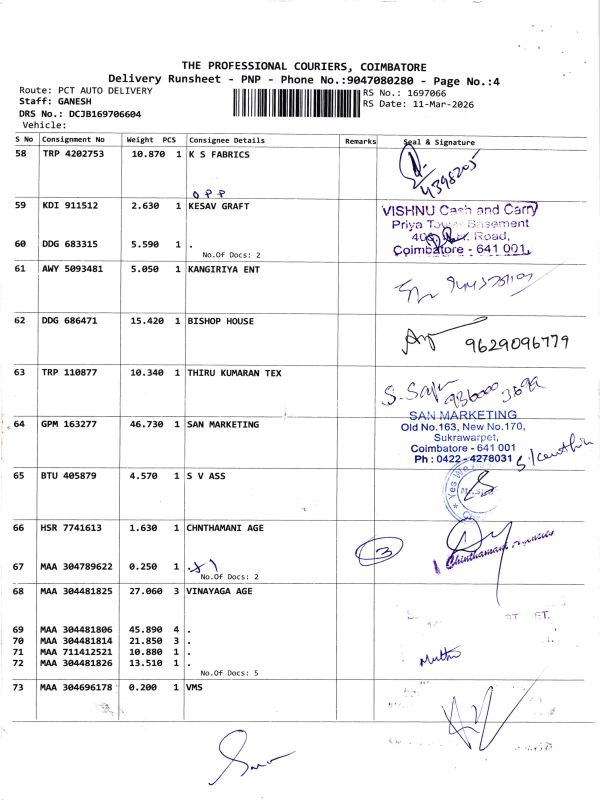 THE PROFESSIONAL COURIERS, COIMBATORE
Delivery Runsheet - PNP - Phone No.:9047080280 - Page No.:4
Route: PCT AUTO DELIVERY
Staff: GANESH
DRS No.: DCJB169706604
Vehicle:
RS No.: 1697066
RS Date: 11-Mar-2026
S No Consignment No Weight PCS Consignee Details Remarks Seal & Signature
58 TRP 4202753 10.870 1 K S FABRICS
OPP
59 KDI 911512 2.630 1 KESAV GRAFT
VISHNU Cash and Carry
Priya Tower Basement
Road,
Coimbatore - 641 001.
60 DDG 683315 5.590 1 .
No.Of Docs: 2
61 AWY 5093481 5.050 1 KANGIRIYA ENT
62 DDG 686471 15.420 1 BISHOP HOUSE
9629096779
63 TRP 110877 10.340 1 THIRU KUMARAN TEX
64 GPM 163277 46.730 1 SAN MARKETING
SAN MARKETING
Old No.163, New No.170,
Sukrawarpet,
Coimbatore - 641 001
Ph : 0422 - 4278031
65 BTU 405879 4.570 1 S V ASS
66 HSR 7741613 1.630 1 CHNTHAMANI AGE
3
Chinthamani Agencies
67 MAA 304789622 0.250 1 .
No.Of Docs: 2
68 MAA 304481825 27.060 3 VINAYAGA AGE
69 MAA 304481806 45.890 4 .
70 MAA 304481814 21.850 3 .
71 MAA 711412521 10.880 1 .
72 MAA 304481826 13.510 1 .
No.Of Docs: 5
Muthu
73 MAA 304696178 0.200 1 VMS